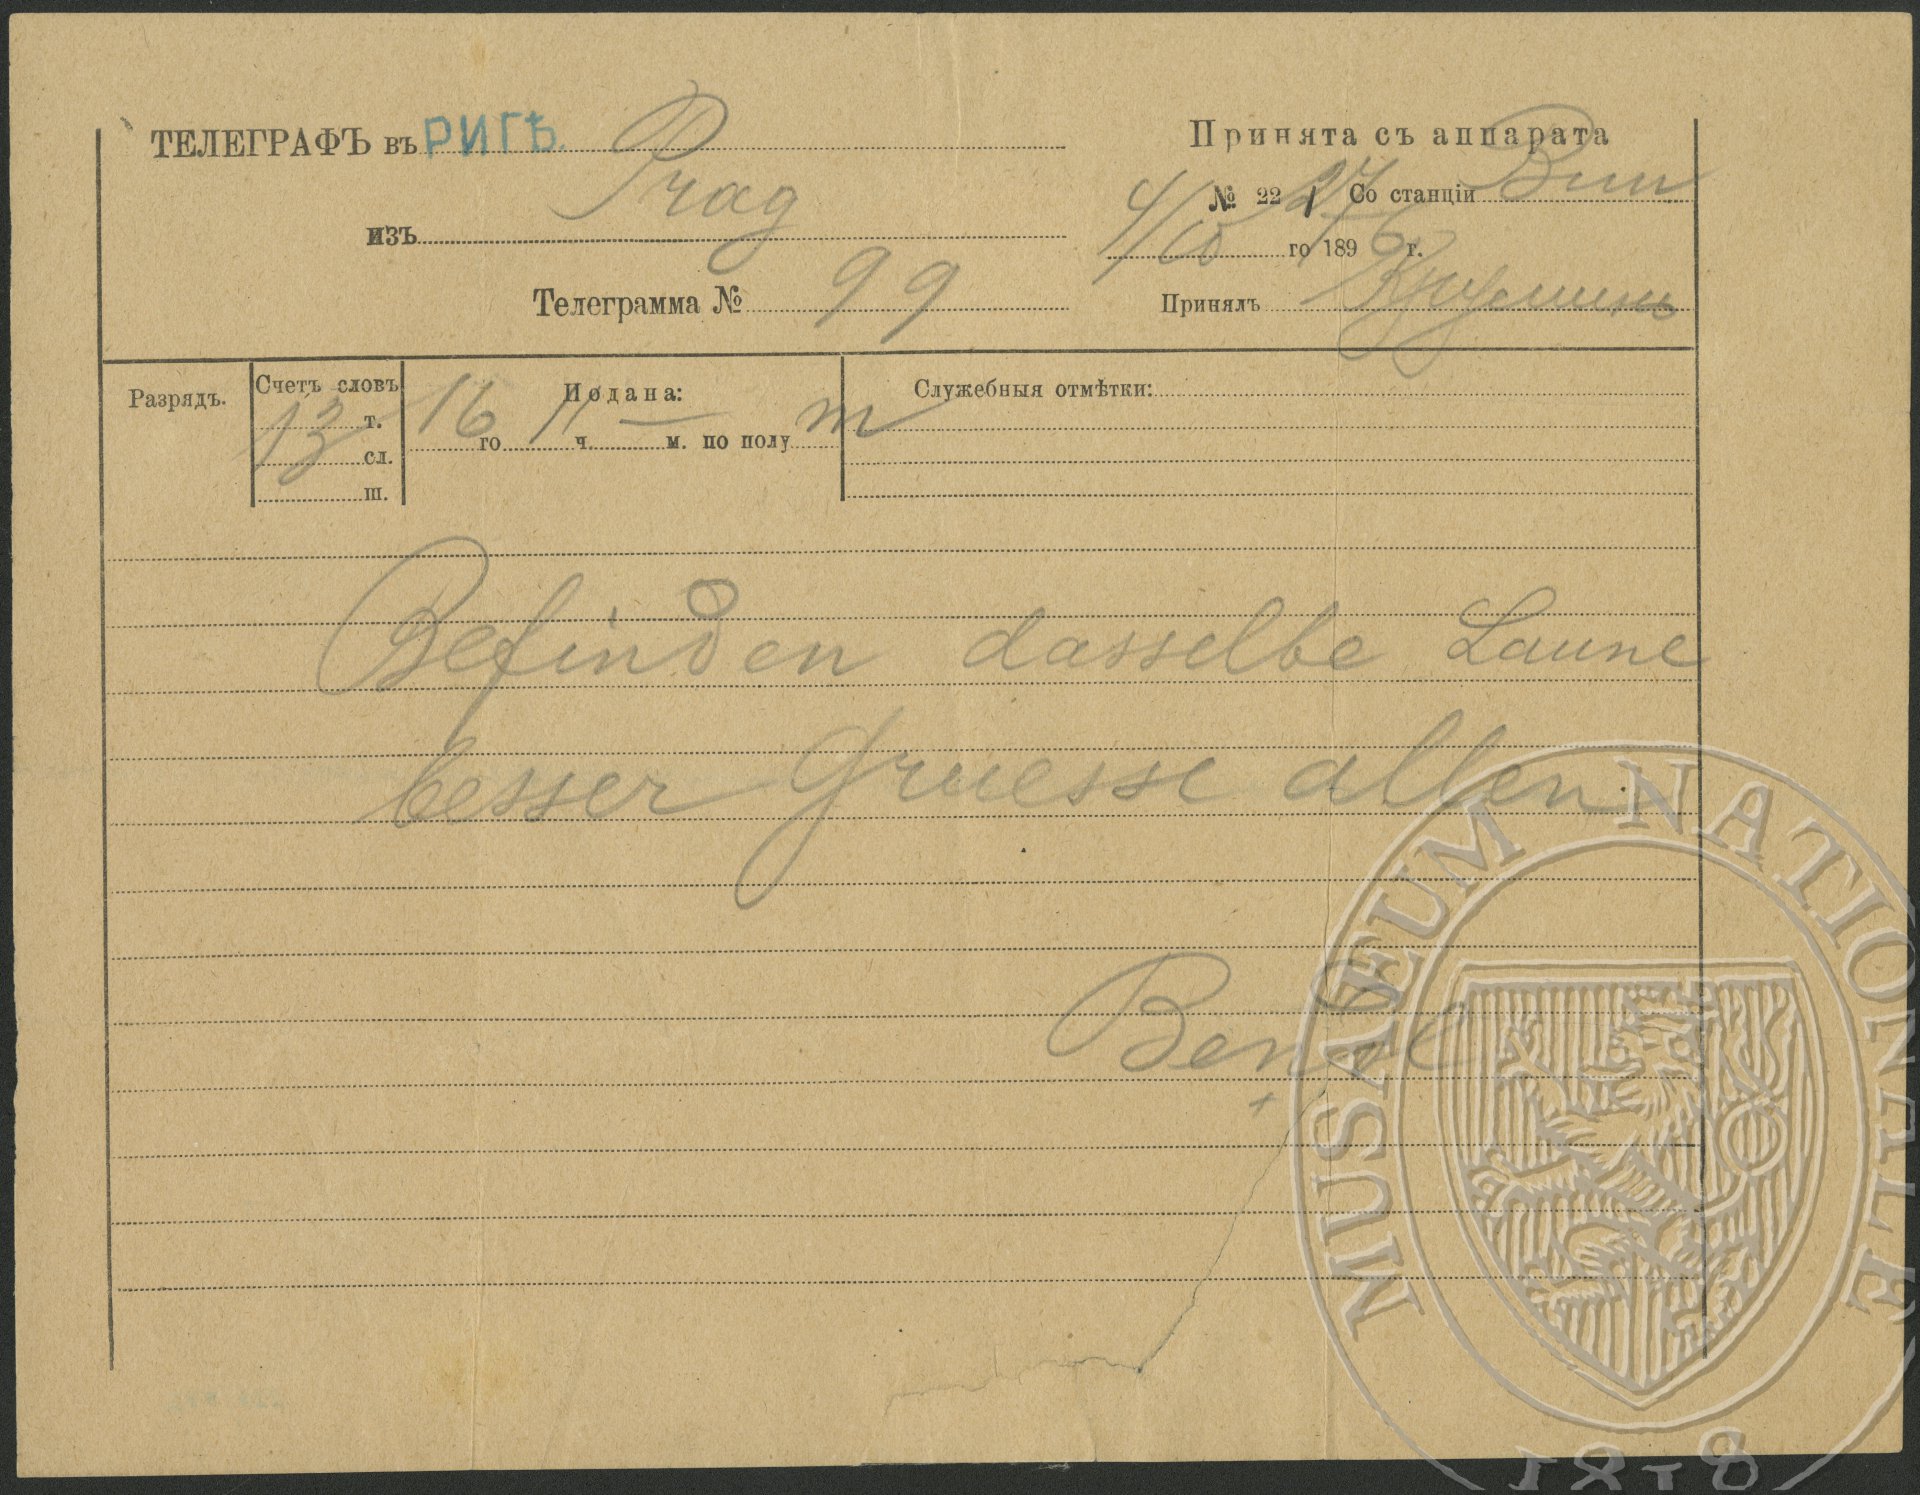 ТЕЛЕГРАФЪ въ РИГѢ.
Prag
изъ
Телеграмма № 99
Принята съ аппарата
№ 22 Со станціи
4/10 го 1896 г.
Принялъ
Разрядъ.
Счетъ словъ
13 т.
сл.
ш.
Подана:
16 го 11 ч. — м. по полу
Служебныя отмѣтки:
Befinden dasselbe Laune
besser Gruesse allen
MUSAEUM NATIONALE
1818